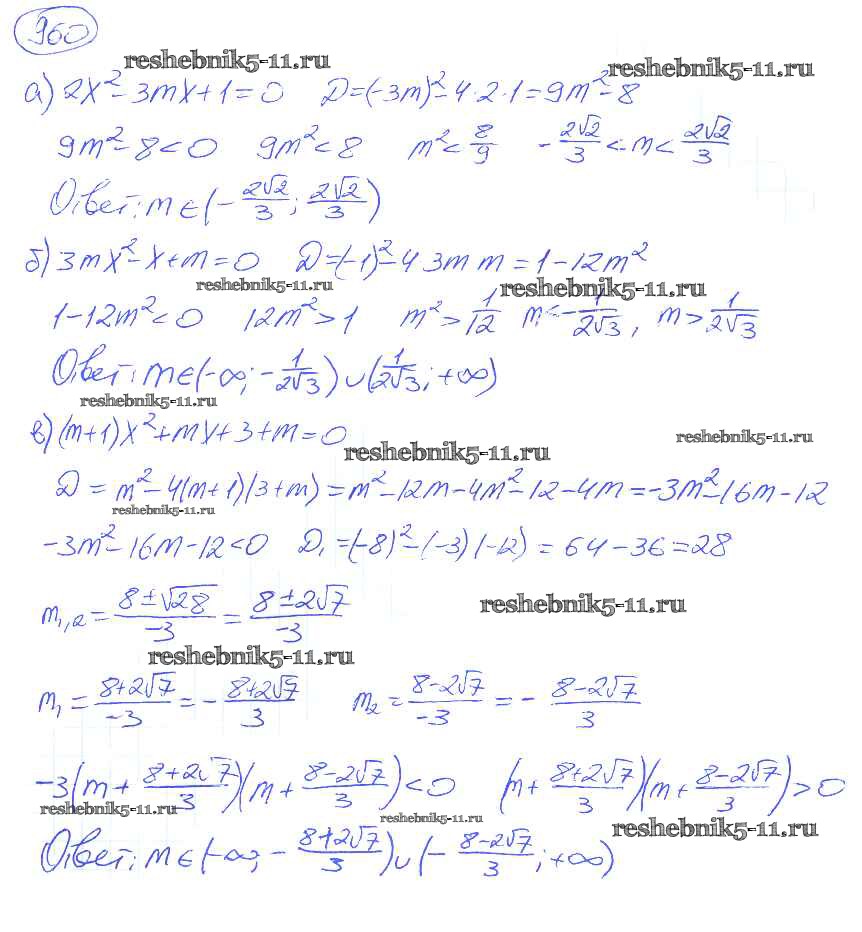 960
reshebnik5-11.ru
reshebnik5-11.ru
а) 2x² - 3mx + 1 = 0 D = (-3m)² - 4·2·1 = 9m² - 8
9m² - 8 < 0 9m² < 8 m² < 8/9 -2√2/3 < m < 2√2/3
Ответ: m ∈ (-2√2/3; 2√2/3)
б) 3mx² - x + m = 0 D = (-1)² - 4 3m m = 1 - 12m²
reshebnik5-11.ru
reshebnik5-11.ru
1 - 12m² < 0 12m² > 1 m² > 1/12 m < -1/2√3, m > 1/2√3
Ответ: m ∈ (-∞; -1/2√3) ∪ (1/2√3; +∞)
reshebnik5-11.ru
в) (m+1)x² + mx + 3 + m = 0
reshebnik5-11.ru
reshebnik5-11.ru
D = m² - 4(m+1)(3+m) = m² - 12m - 4m² - 12 - 4m = -3m² - 16m - 12
reshebnik5-11.ru
-3m² - 16m - 12 < 0 D₁ = (-8)² - (-3)(-12) = 64 - 36 = 28
m₁,₂ = (8 ± √28)/-3 = (8 ± 2√7)/-3
reshebnik5-11.ru
reshebnik5-11.ru
m₁ = (8+2√7)/-3 = -(8+2√7)/3 m₂ = (8-2√7)/-3 = -(8-2√7)/3
-3(m + (8+2√7)/3)(m + (8-2√7)/3) < 0 (m + (8+2√7)/3)(m + (8-2√7)/3) > 0
reshebnik5-11.ru
reshebnik5-11.ru
reshebnik5-11.ru
Ответ: m ∈ (-∞; -(8+2√7)/3) ∪ (-(8-2√7)/3; +∞)